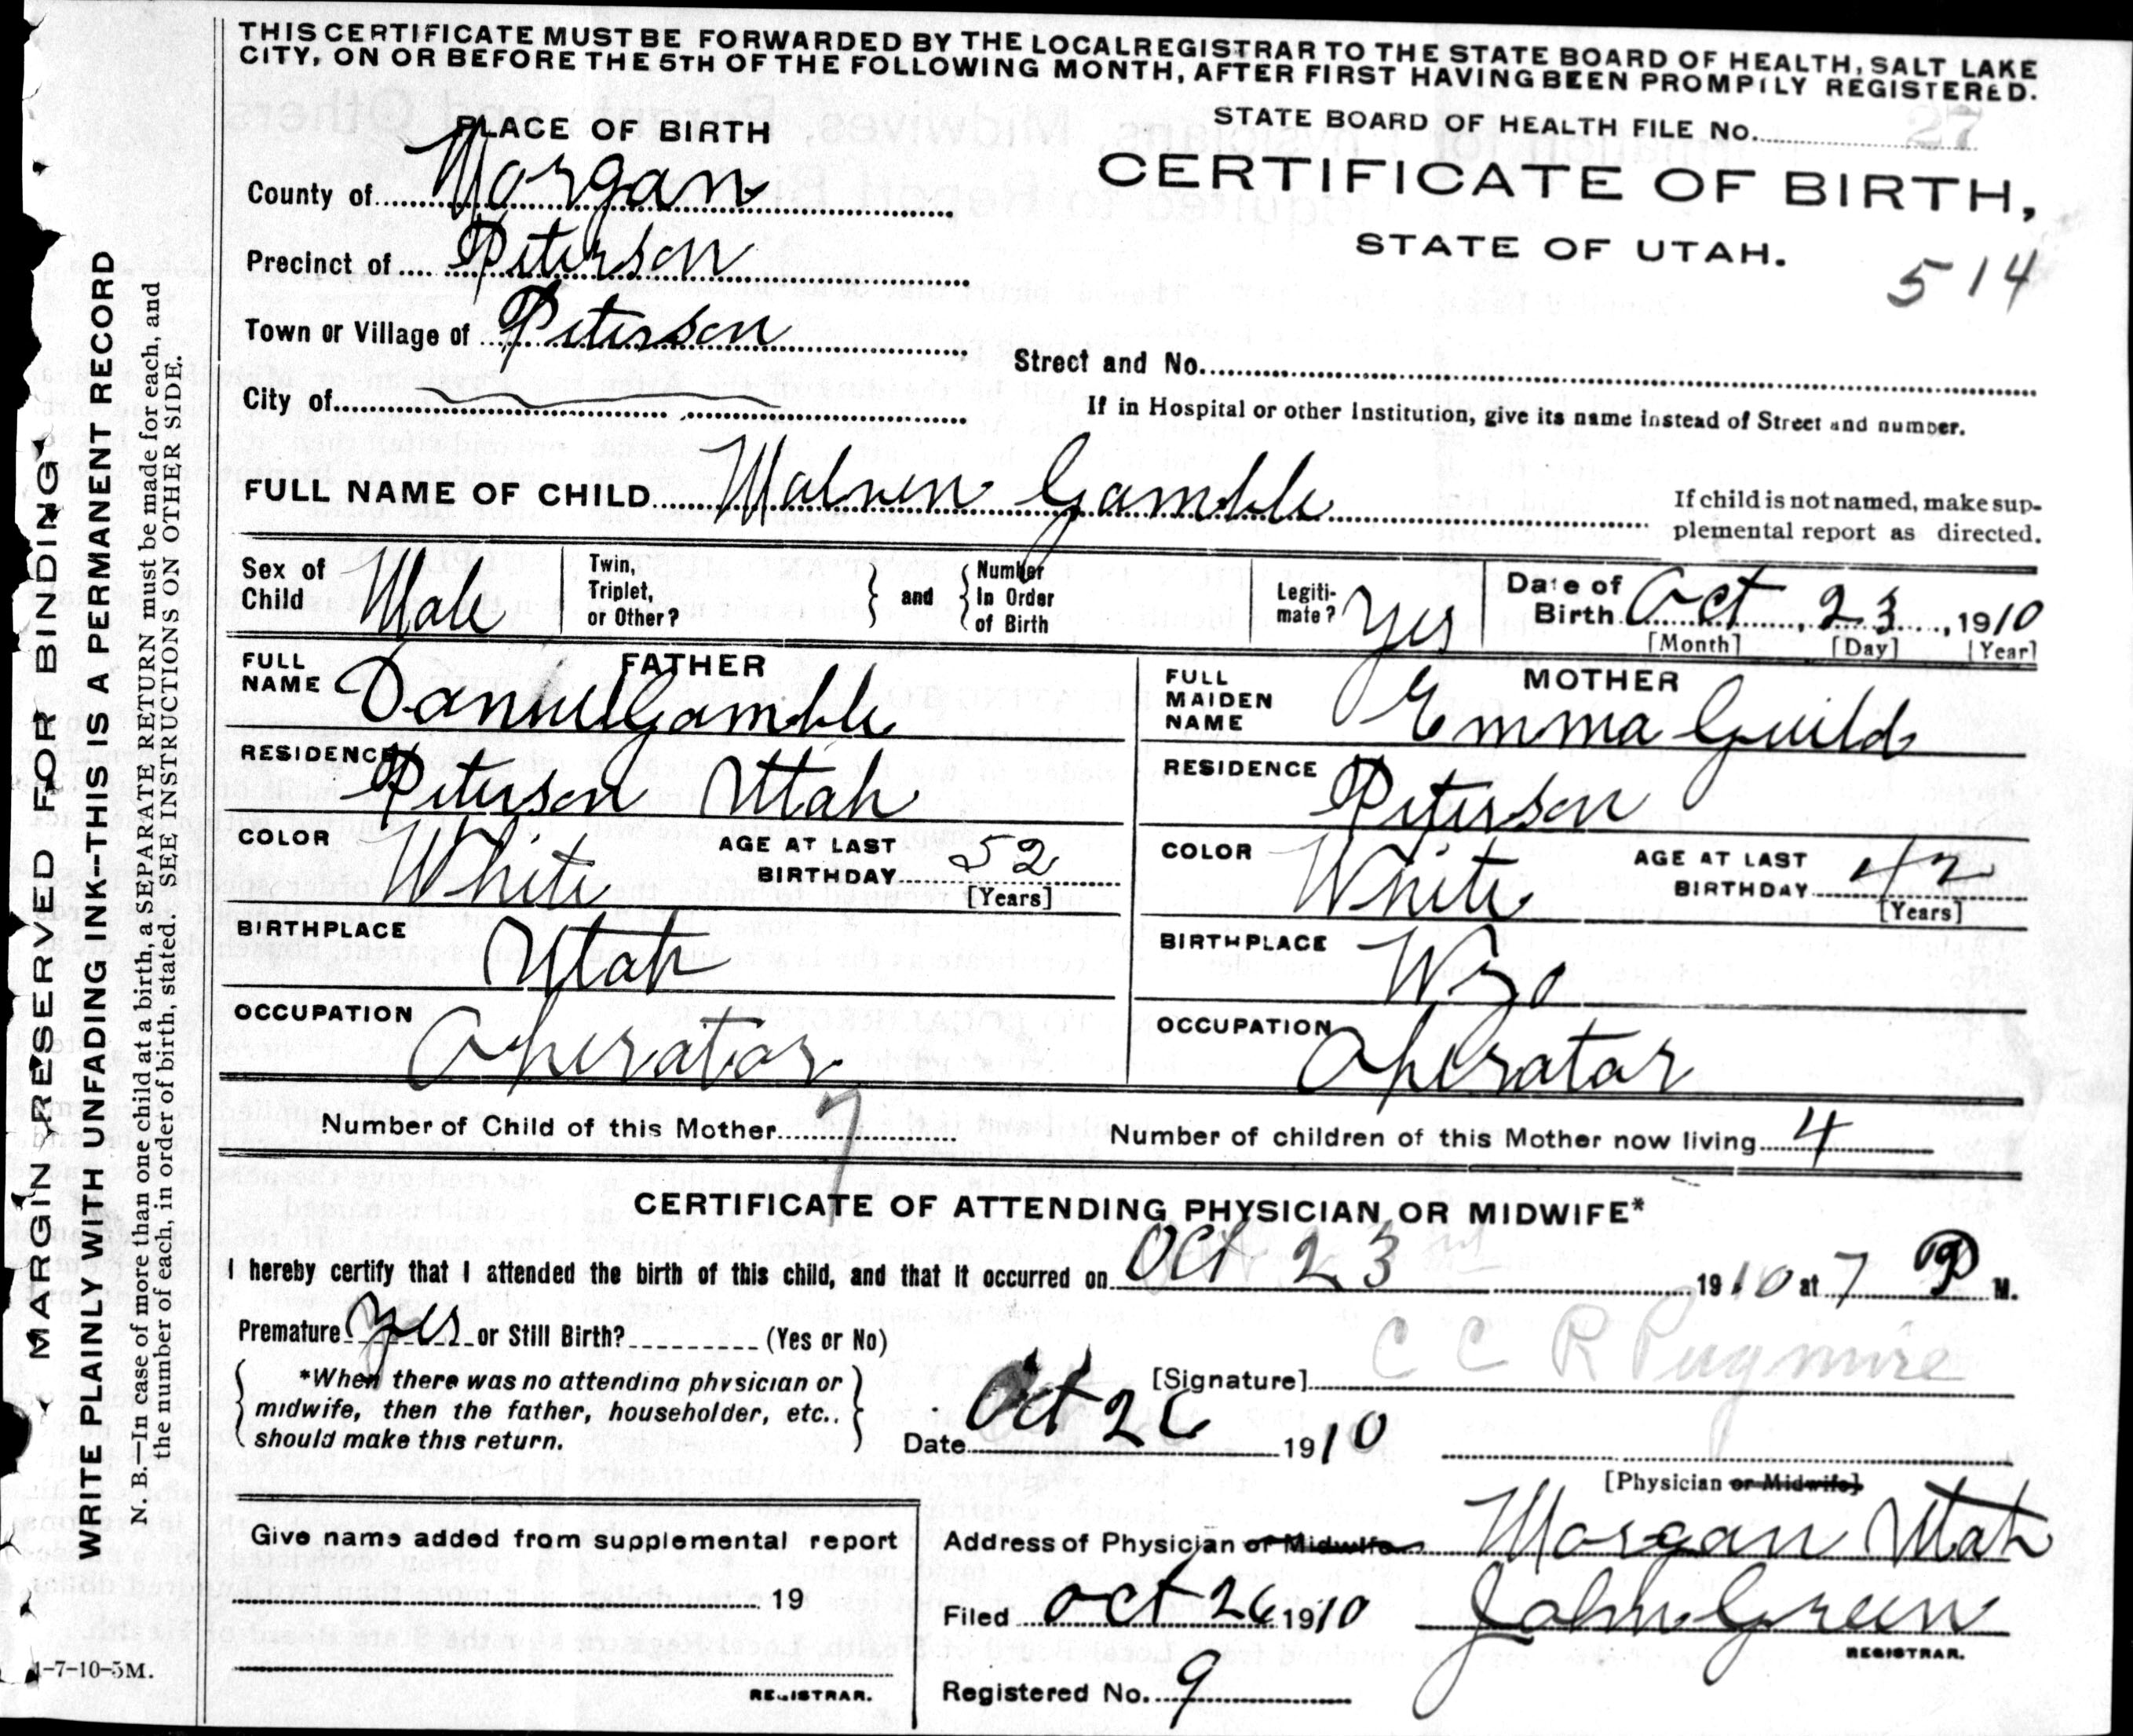 THIS CERTIFICATE MUST BE FORWARDED BY THE LOCAL REGISTRAR TO THE STATE BOARD OF HEALTH, SALT LAKE
CITY, ON OR BEFORE THE 5TH OF THE FOLLOWING MONTH, AFTER FIRST HAVING BEEN PROMPTLY REGISTERED.
STATE BOARD OF HEALTH FILE No. 27
PLACE OF BIRTH
CERTIFICATE OF BIRTH,
STATE OF UTAH.
514
County of Morgan
Precinct of Peterson
Town or Village of Peterson
Street and No.
City of
If in Hospital or other Institution, give its name instead of Street and number.
FULL NAME OF CHILD Malven Gamble
If child is not named, make sup-
plemental report as directed.
Sex of Child Male
Twin, Triplet, or Other? and Number In Order of Birth
Legiti-mate? Yes
Date of Birth Oct, 23, 1910
[Month] [Day] [Year]
FATHER
FULL NAME Danniel Gamble
RESIDENCE Peterson Utah
COLOR White AGE AT LAST BIRTHDAY 52
[Years]
BIRTHPLACE Utah
OCCUPATION Operator
MOTHER
FULL MAIDEN NAME Emma Guild
RESIDENCE Peterson
COLOR White AGE AT LAST BIRTHDAY 42
[Years]
BIRTHPLACE Wyo
OCCUPATION Operator
Number of Child of this Mother 7
Number of children of this Mother now living 4
CERTIFICATE OF ATTENDING PHYSICIAN OR MIDWIFE*
I hereby certify that I attended the birth of this child, and that it occurred on Oct 23rd 1910 at 7 P M.
Premature Yes or Still Birth? (Yes or No)
*When there was no attending physician or
midwife, then the father, householder, etc.,
should make this return.
[Signature] C C R Pugmire
Date Oct 26 1910
[Physician or Midwife]
Address of Physician or Midwife Morgan Utah
Give name added from supplemental report
19
REGISTRAR.
Filed Oct 26 1910 John Green
REGISTRAR.
Registered No. 9
MARGIN RESERVED FOR BINDING
WRITE PLAINLY WITH UNFADING INK--THIS IS A PERMANENT RECORD
N. B.—In case of more than one child at a birth, a SEPARATE RETURN must be made for each, and
the number of each, in order of birth, stated. SEE INSTRUCTIONS ON OTHER SIDE.
1-7-10-5M.